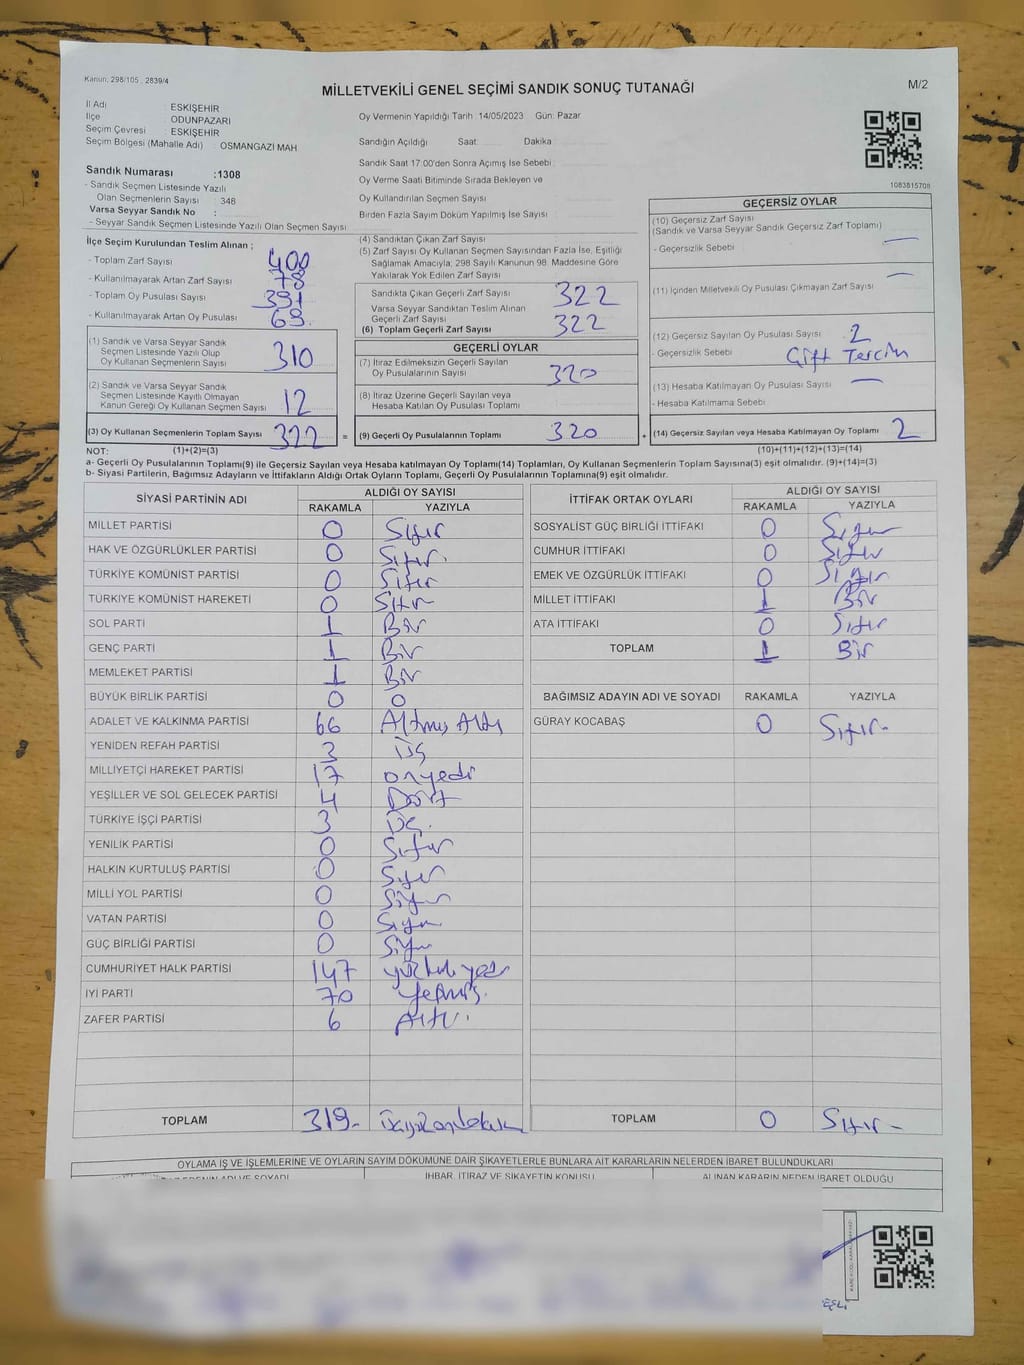 Kanun; 298/105 , 2839/4
MİLLETVEKİLİ GENEL SEÇİMİ SANDIK SONUÇ TUTANAĞI
M/2
İl Adı : ESKİŞEHİR
İlçe : ODUNPAZARI
Seçim Çevresi : ESKİŞEHİR
Seçim Bölgesi (Mahalle Adı) : OSMANGAZİ MAH
Oy Vermenin Yapıldığı Tarih :14/05/2023 Gün: Pazar
Sandığın Açıldığı Saat: Dakika:
Sandık Saat 17:00'den Sonra Açımış İse Sebebi :
Oy Verme Saati Bitiminde Sırada Bekleyen ve
Oy Kullandırılan Seçmen Sayısı
Birden Fazla Sayım Döküm Yapılmış İse Sayısı
1083815708
Sandık Numarası :1308
- Sandık Seçmen Listesinde Yazılı
Olan Seçmenlerin Sayısı : 346
Varsa Seyyar Sandık No :
- Seyyar Sandık Seçmen Listesinde Yazılı Olan Seçmen Sayısı
İlçe Seçim Kurulundan Teslim Alınan ;
- Toplam Zarf Sayısı 400
- Kullanılmayarak Artan Zarf Sayısı 78
- Toplam Oy Pusulası Sayısı 391
- Kullanılmayarak Artan Oy Pusulası 69
(1) Sandık ve Varsa Seyyar Sandık
Seçmen Listesinde Yazılı Olup
Oy Kullanan Seçmenlerin Sayısı 310
(2) Sandık ve Varsa Seyyar Sandık
Seçmen Listesinde Kayıtlı Olmayan
Kanun Gereği Oy Kullanan Seçmen Sayısı 12
(3) Oy Kullanan Seçmenlerin Toplam Sayısı 322 =
(4) Sandıktan Çıkan Zarf Sayısı
(5) Zarf Sayısı Oy Kullanan Seçmen Sayısından Fazla İse, Eşitliği
Sağlamak Amacıyla, 298 Sayılı Kanunun 98. Maddesine Göre
Yakılarak Yok Edilen Zarf Sayısı
Sandıkta Çıkan Geçerli Zarf Sayısı 322
Varsa Seyyar Sandıktan Teslim Alınan
Geçerli Zarf Sayısı
(6) Toplam Geçerli Zarf Sayısı 322
GEÇERLİ OYLAR
(7) İtiraz Edilmeksizin Geçerli Sayılan
Oy Pusulalarının Sayısı 320
(8) İtiraz Üzerine Geçerli Sayılan veya
Hesaba Katılan Oy Pusulası Toplamı
(9) Geçerli Oy Pusulalarının Toplamı 320 +
GEÇERSİZ OYLAR
(10) Geçersiz Zarf Sayısı
(Sandık ve Varsa Seyyar Sandık Geçersiz Zarf Toplamı)
- Geçersizlik Sebebi
(11) İçinden Milletvekili Oy Pusulası Çıkmayan Zarf Sayısı
(12) Geçersiz Sayılan Oy Pusulası Sayısı 2
- Geçersizlik Sebebi Çift Tercih
(13) Hesaba Katılmayan Oy Pusulası Sayısı
- Hesaba Katılmama Sebebi
(14) Geçersiz Sayılan veya Hesaba Katılmayan Oy Toplamı 2
NOT: (1)+(2)=(3) (10)+(11)+(12)+(13)=(14)
a- Geçerli Oy Pusulalarının Toplamı(9) ile Geçersiz Sayılan veya Hesaba katılmayan Oy Toplamı(14) Toplamları, Oy Kullanan Seçmenlerin Toplam Sayısına(3) eşit olmalıdır. (9)+(14)=(3)
b- Siyasi Partilerin, Bağımsız Adayların ve İttifakların Aldığı Ortak Oyların Toplamı, Geçerli Oy Pusulalarının Toplamına(9) eşit olmalıdır.
SİYASİ PARTİNİN ADI ALDIĞI OY SAYISI
RAKAMLA YAZIYLA
MİLLET PARTİSİ 0 Sıfır
HAK VE ÖZGÜRLÜKLER PARTİSİ 0 Sıfır
TÜRKİYE KOMÜNİST PARTİSİ 0 Sıfır
TÜRKİYE KOMÜNİST HAREKETİ 0 Sıfır
SOL PARTİ 1 Bir
GENÇ PARTİ 1 Bir
MEMLEKET PARTİSİ 1 Bir
BÜYÜK BİRLİK PARTİSİ 0 0
ADALET VE KALKINMA PARTİSİ 66 Altmış Altı
YENİDEN REFAH PARTİSİ 3 Üç
MİLLİYETÇİ HAREKET PARTİSİ 17 onyedi
YEŞİLLER VE SOL GELECEK PARTİSİ 4 Dört
TÜRKİYE İŞÇİ PARTİSİ 3 Üç.
YENİLİK PARTİSİ 0 Sıfır
HALKIN KURTULUŞ PARTİSİ 0 Sıfır
MİLLİ YOL PARTİSİ 0 Sıfır
VATAN PARTİSİ 0 Sıfır
GÜÇ BİRLİĞİ PARTİSİ 0 Sıfır
CUMHURİYET HALK PARTİSİ 147
İYİ PARTİ 70 Yetmiş.
ZAFER PARTİSİ 6 Altı.
TOPLAM 319-
İTTİFAK ORTAK OYLARI ALDIĞI OY SAYISI
RAKAMLA YAZIYLA
SOSYALİST GÜÇ BİRLİĞİ İTTİFAKI 0 Sıfır
CUMHUR İTTİFAKI 0 Sıfır
EMEK VE ÖZGÜRLÜK İTTİFAKI 0 Sıfır
MİLLET İTTİFAKI 1 Bir
ATA İTTİFAKI 0 Sıfır
TOPLAM 1 Bir
BAĞIMSIZ ADAYIN ADI VE SOYADI RAKAMLA YAZIYLA
GÜRAY KOCABAŞ 0 Sıfır-
TOPLAM 0 Sıfır-
OYLAMA İŞ VE İŞLEMLERİNE VE OYLARIN SAYIM DÖKÜMÜNE DAİR ŞİKAYETLERLE BUNLARA AİT KARARLARIN NELERDEN İBARET BULUNDUKLARI
ADI VE SOYADI İHBAR, İTİRAZ VE ŞİKAYETİN KONUSU ALINAN KARARIN NEDEN İBARET OLDUĞU